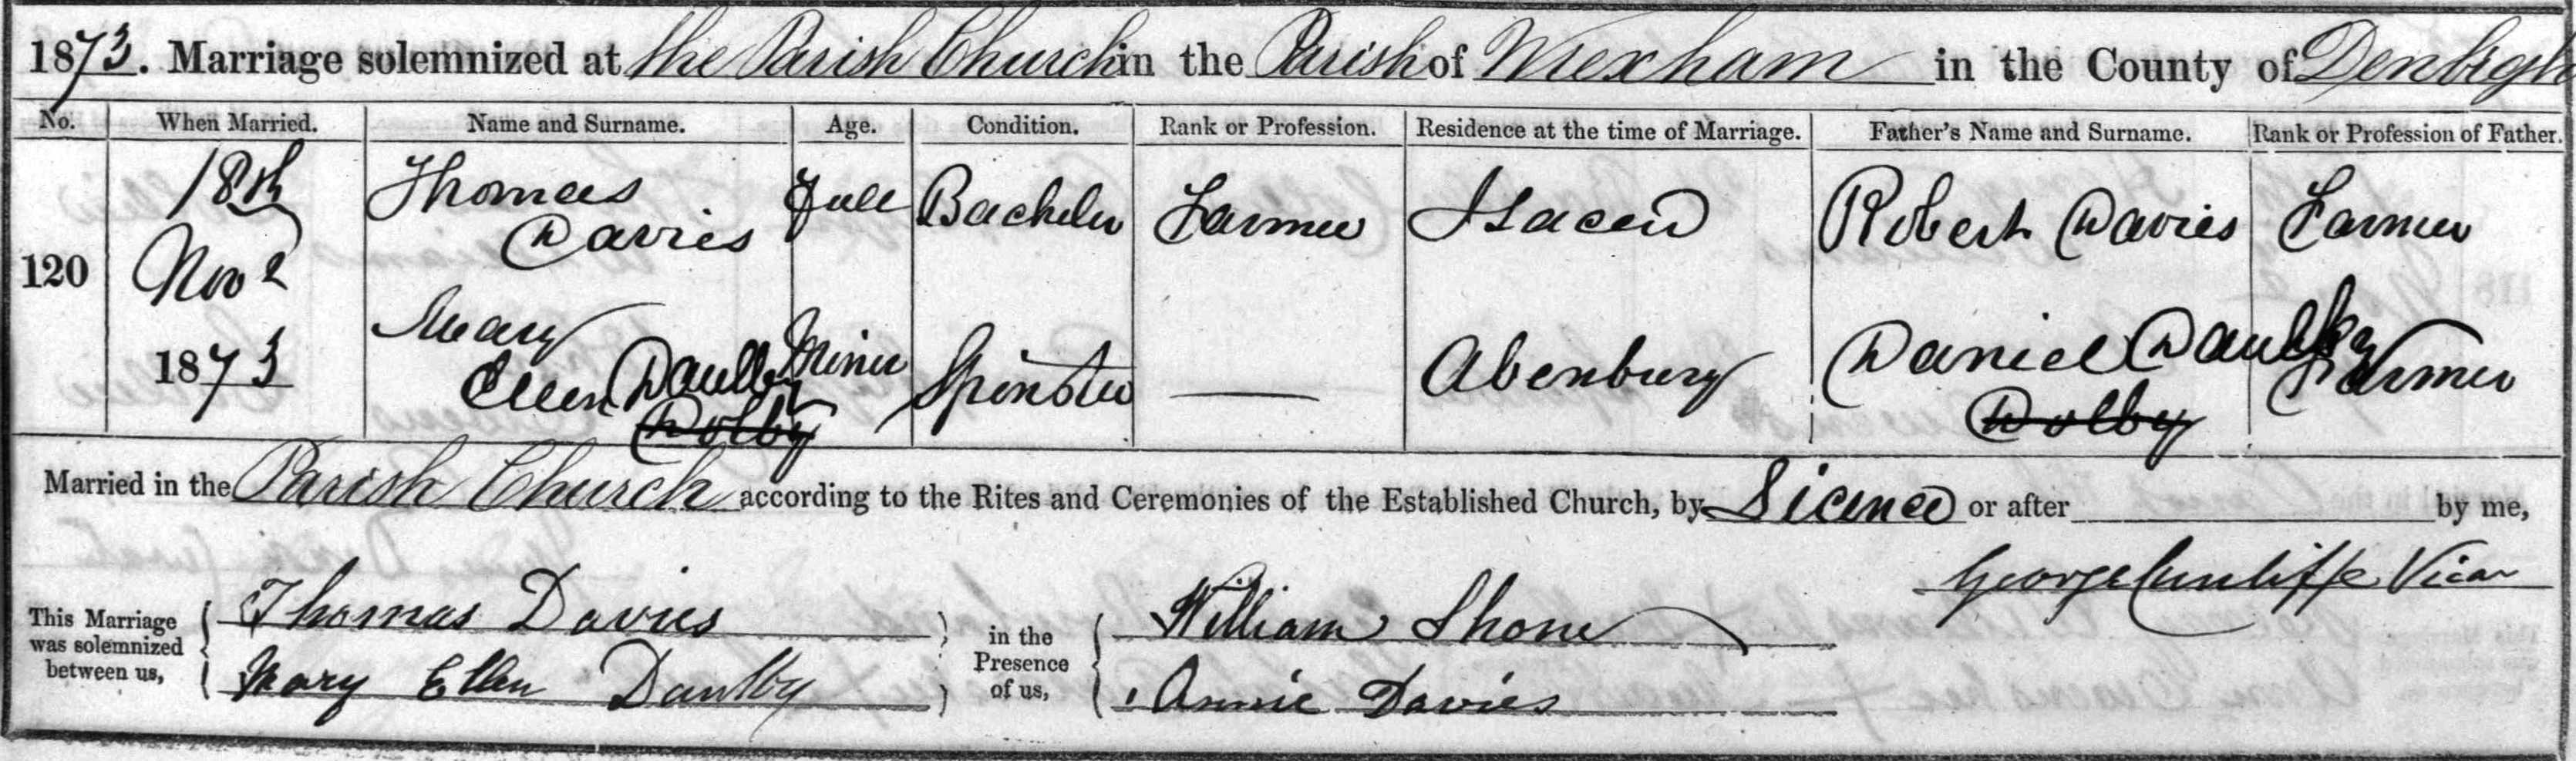 1873. Marriage solemnized at the Parish Church in the Parish of Wrexham in the County of Denbigh
No. When Married. Name and Surname. Age. Condition. Rank or Profession. Residence at the time of Marriage. Father's Name and Surname. Rank or Profession of Father.
120
18th Nov 1873
Thomas Davies Full Bachelor Farmer Robert Davies Farmer
Mary Ellen Daulby Dolby Minor Spinster — Abenbury Daniel Daulby Dolby Farmer
Married in the Parish Church according to the Rites and Ceremonies of the Established Church, by Licence or after by me,
George Cunliffe Vicar
This Marriage was solemnized between us,
Thomas Davies
Mary Ellen Daulby
in the Presence of us,
William Shone
Annie Davies